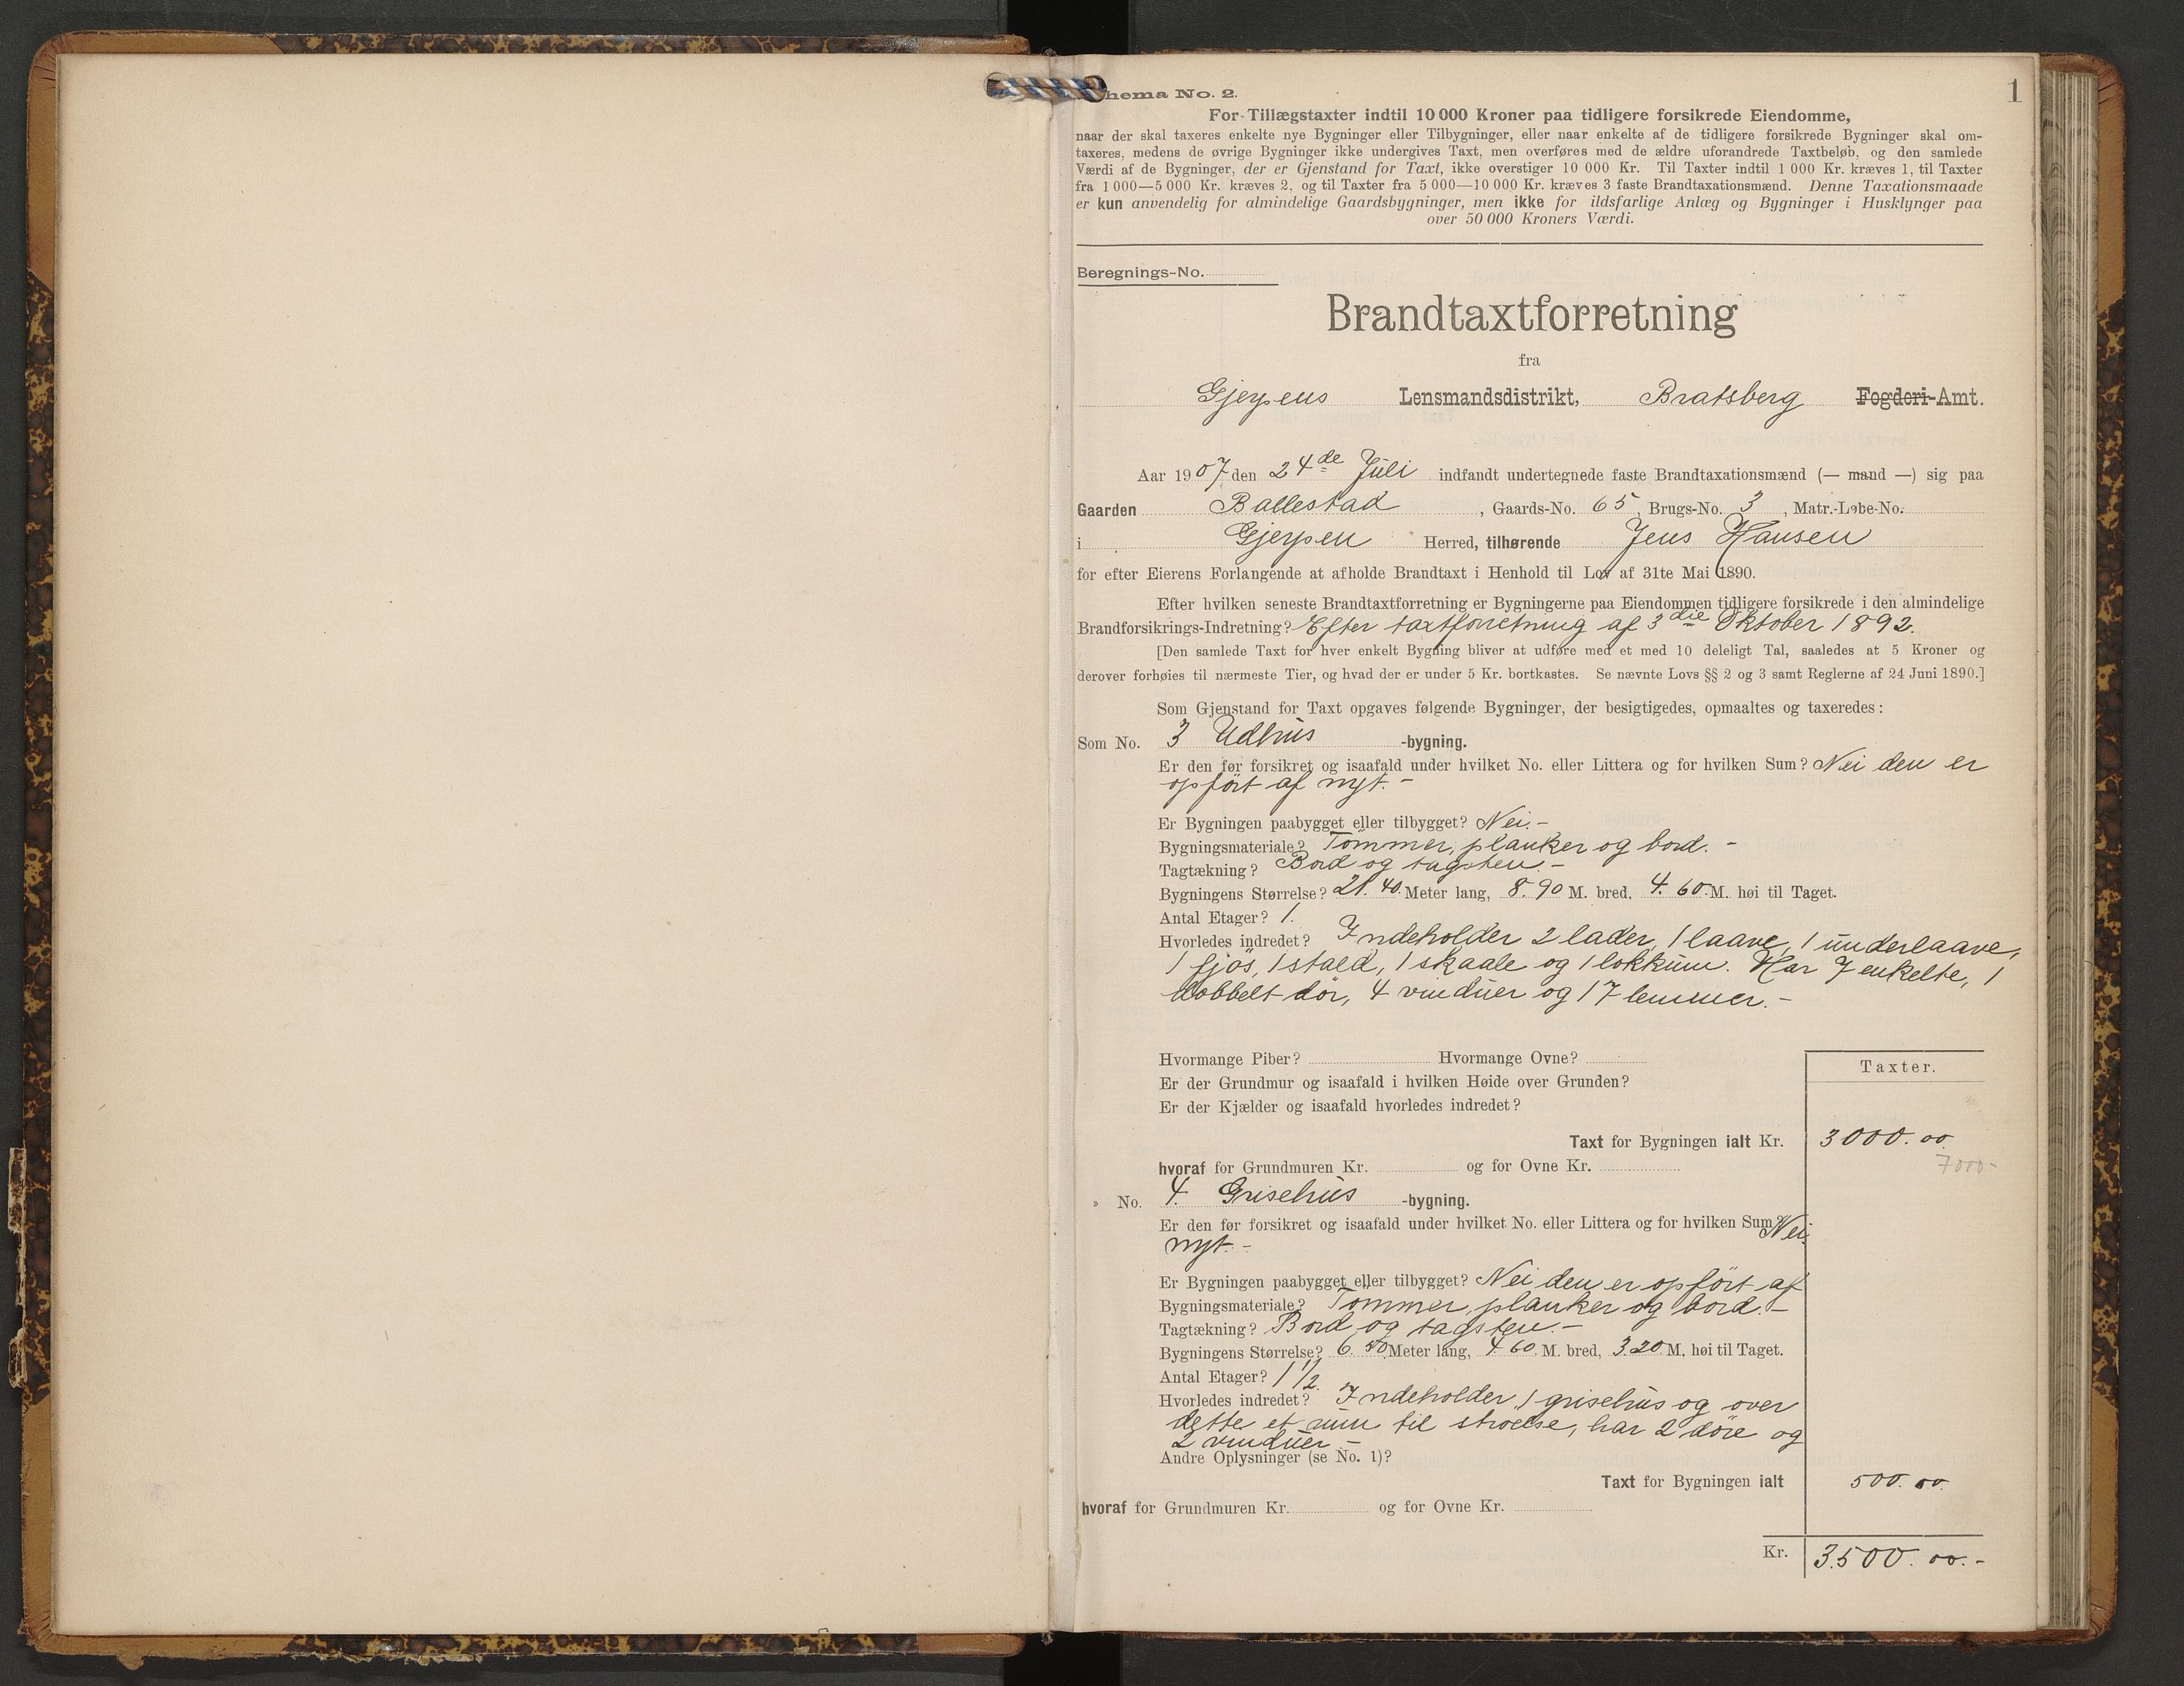 1
hema No. 2.
For Tillægstaxter indtil 10 000 Kroner paa tidligere forsikrede Eiendomme,
naar der skal taxeres enkelte nye Bygninger eller Tilbygninger, eller naar enkelte af de tidligere forsikrede Bygninger skal om-
taxeres, medens de øvrige Bygninger ikke undergives Taxt, men overføres med de ældre uforandrede Taxtbeløb, og den samlede
Værdi af de Bygninger, der er Gjenstand for Taxt, ikke overstiger 10 000 Kr. Til Taxter indtil 1 000 Kr. kræves 1, til Taxter
fra 1 000—5 000 Kr. kræves 2, og til Taxter fra 5 000—10 000 Kr. kræves 3 faste Brandtaxationsmænd. Denne Taxationsmaade
er kun anvendelig for almindelige Gaardsbygninger, men ikke for ildsfarlige Anlæg og Bygninger i Husklynger paa
over 50 000 Kroners Værdi.
Beregnings-No.
Brandtaxtforretning
fra
Gjerpens Lensmandsdistrikt, Bratsberg Fogderi-Amt.
Aar 1907 den 24de Juli indfandt undertegnede faste Brandtaxationsmænd (— mand —) sig paa
Gaarden Ballestad, Gaards-No. 65, Brugs-No. 3, Matr.-Løbe-No.
i Gjerpen Herred, tilhørende Jens Hansen
for efter Eierens Forlangende at afholde Brandtaxt i Henhold til Lov af 31te Mai 1890.
Efter hvilken seneste Brandtaxtforretning er Bygningerne paa Eiendommen tidligere forsikrede i den almindelige
Brandforsikrings-Indretning? Efter taxtforretning af 3die Oktober 1892.
[Den samlede Taxt for hver enkelt Bygning bliver at udføre med et med 10 deleligt Tal, saaledes at 5 Kroner og
derover forhøies til nærmeste Tier, og hvad der er under 5 Kr. bortkastes. Se nævnte Lovs §§ 2 og 3 samt Reglerne af 24 Juni 1890.]
Som Gjenstand for Taxt opgaves følgende Bygninger, der besigtigedes, opmaaltes og taxeredes:
Som No. 3 Udhus -bygning.
Er den før forsikret og isaafald under hvilket No. eller Littera og for hvilken Sum? Nei den er
opført af nyt. -
Er Bygningen paabygget eller tilbygget? Nei. -
Bygningsmateriale? Tømmer, planker og bord. -
Tagtækning? Bord og tagsten. -
Bygningens Størrelse? 21.40 Meter lang, 8.90 M. bred, 4.60 M. høi til Taget.
Antal Etager? 1.
Hvorledes indredet? Indeholder 2 lader, 1 laave, 1 underlaave,
1 fjøs, 1 stald, 1 skaale og 1 lokkum. Har 7 enkelte, 1
dobbelt dør, 4 vinduer og 17 lemmer. -
Hvormange Piber? Hvormange Ovne?
Taxter.
Er der Grundmur og isaafald i hvilken Høide over Grunden?
Er der Kjælder og isaafald hvorledes indredet?
Taxt for Bygningen ialt Kr. 3000.00
7000-
hvoraf for Grundmuren Kr. og for Ovne Kr.
» No. 4. Grisehus -bygning.
Er den før forsikret og isaafald under hvilket No. eller Littera og for hvilken Sum? Nei.
nyt. -
Er Bygningen paabygget eller tilbygget? Nei den er opført af
Bygningsmateriale? Tømmer, planker og bord. -
Tagtækning? Bord og tagsten. -
Bygningens Størrelse? 6. Meter lang, 4.60 M. bred, 3.20 M. høi til Taget.
Antal Etager? 1 1/2.
Hvorledes indredet? Indeholder 1 grisehus og over
dette et rum til strøelse, har 2 døre og
2 vinduer. -
Andre Oplysninger (se No. 1)?
Taxt for Bygningen ialt 500.00
hvoraf for Grundmuren Kr. og for Ovne Kr.
Kr. 3.500.00.-